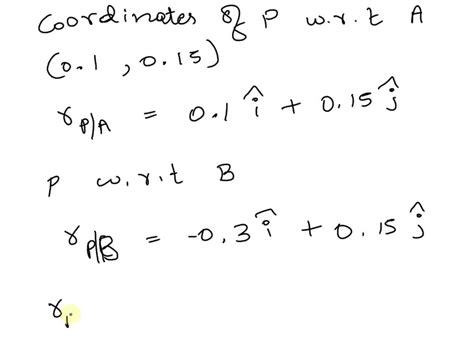 Coordinates of P w.r.t A
(0.1 , 0.15)
r_P/A = 0.1 î + 0.15 ĵ
P w.r.t B
r_P/B = -0.3 î + 0.15 ĵ
r